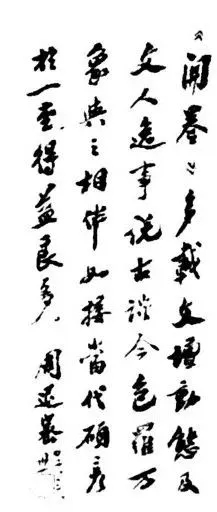 《開卷》多載文壇動態及
文人逸事說古談今包羅万
象與之相伴如接當代碩彥
於一室得益良多 周退密